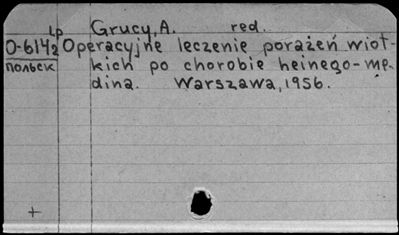 Lp Grucy, A. red.
O-6142 Operacyjne leczenie porażeń wiot-
польск kich po chorobie heinego-me-
dina. Warszawa, 1956.
+